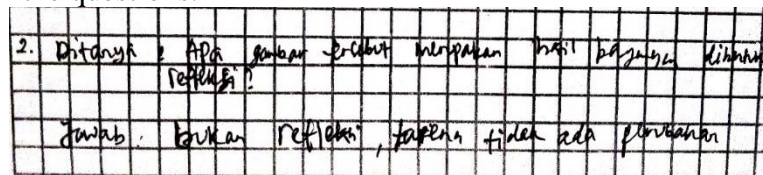 2. Ditanya : Apa gambar tersebut merupakan hasil bayangan
refleksi?
Jawab : bukan refleksi, karena tidak ada perubahan